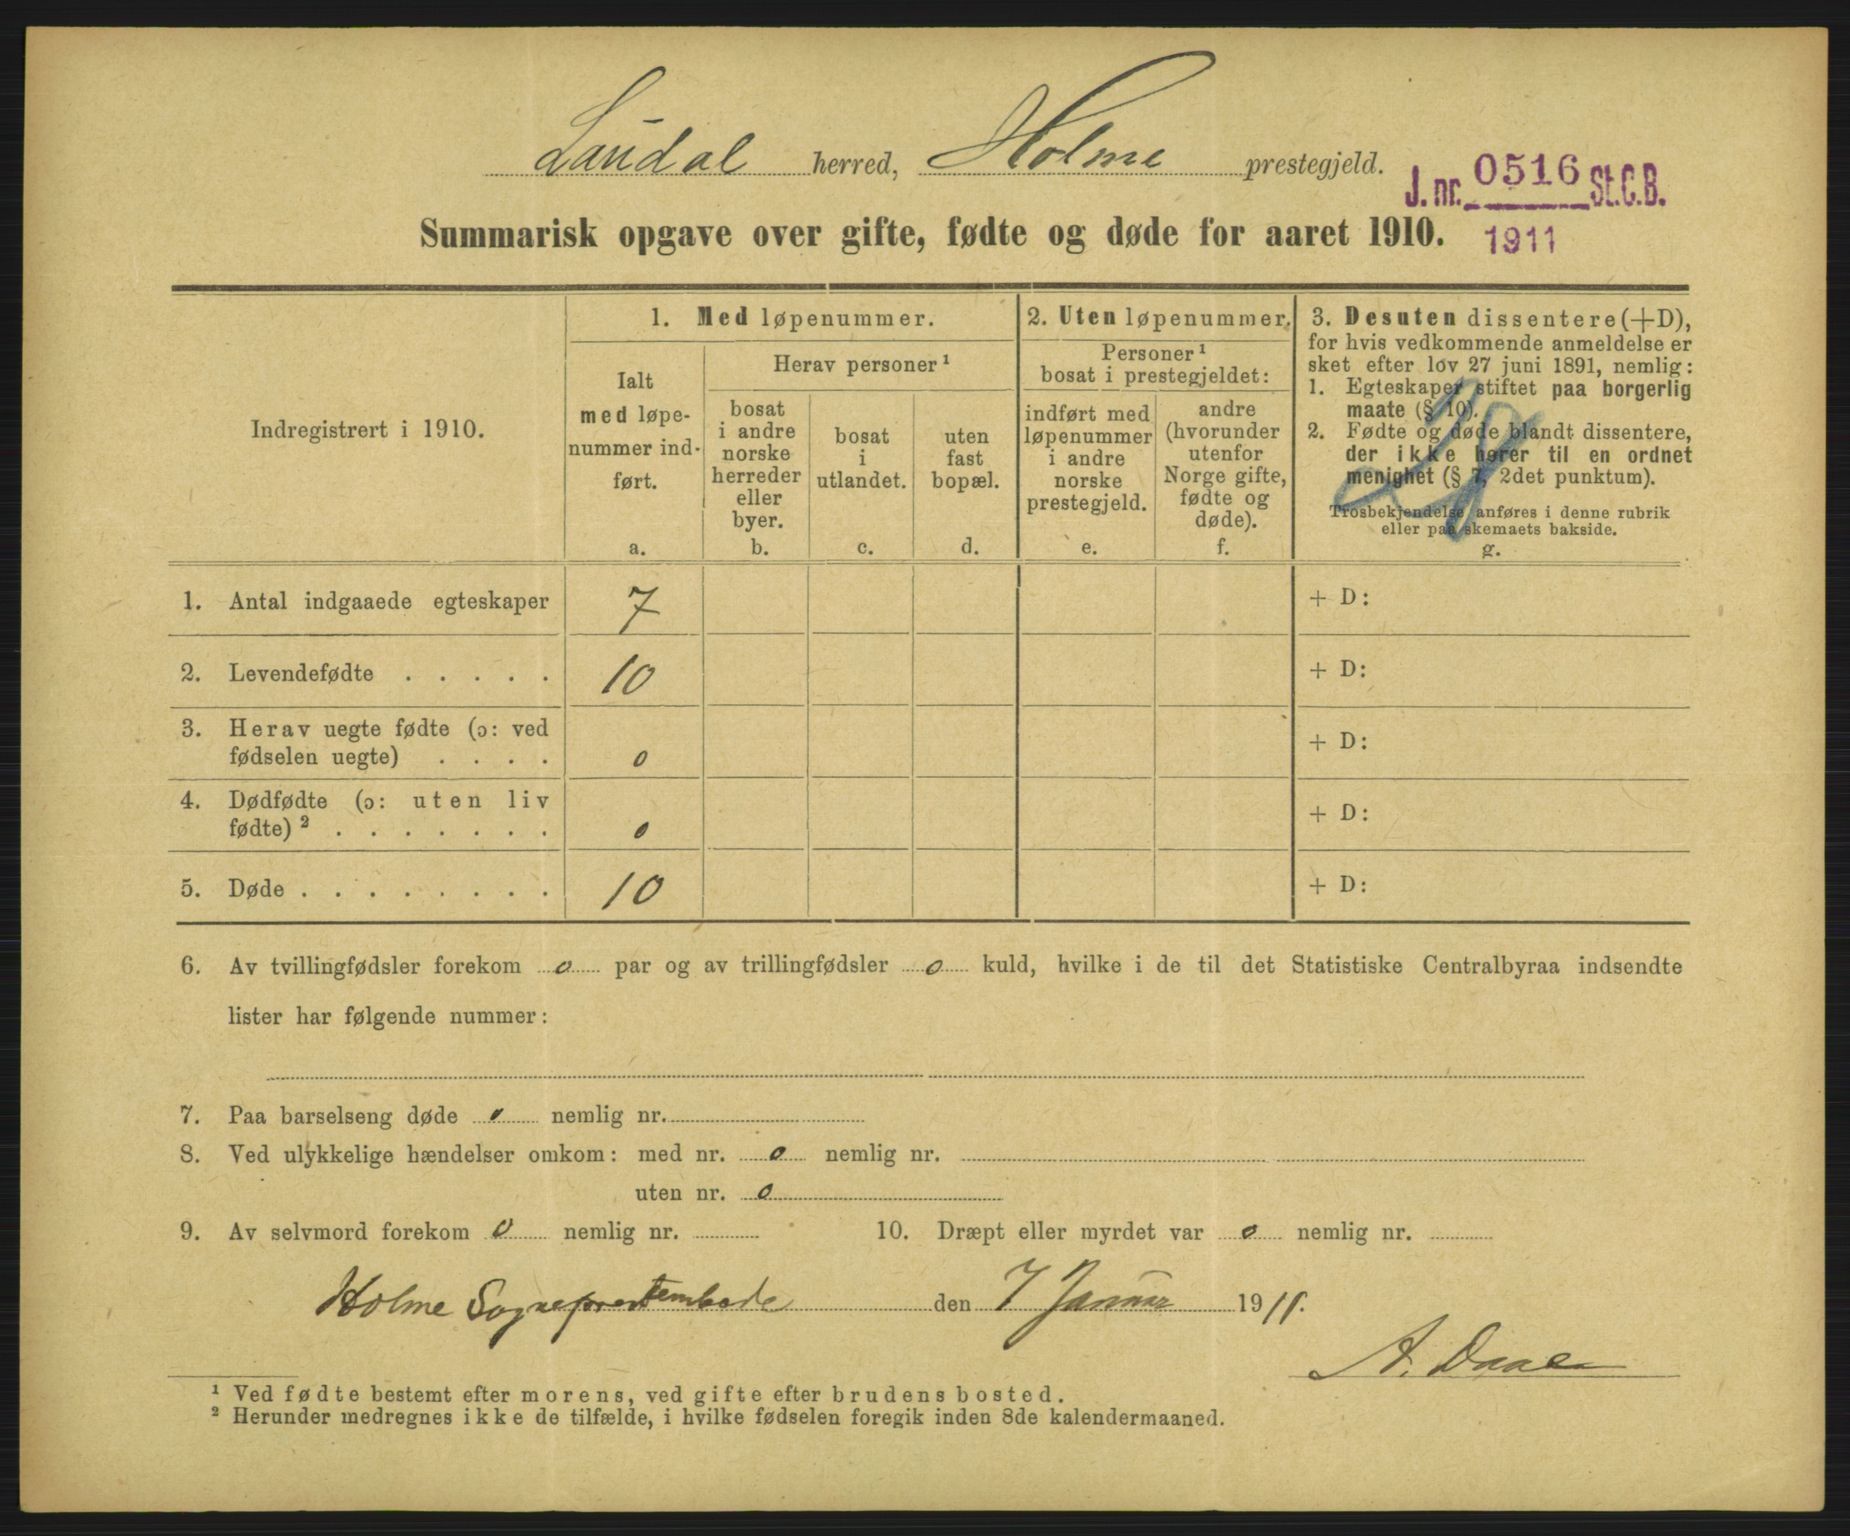 Laudal herred, Holme prestegjeld.
J. nr. 0516 St.C.B.
1911
Summarisk opgave over gifte, fødte og døde for aaret 1910.
Indregistrert i 1910.
1. Med løpenummer.
Ialt
med løpe-
nummer ind-
ført.
a.
Herav personer ¹
bosat
i andre
norske
herreder
eller
byer.
b.
bosat
i
utlandet.
c.
uten
fast
bopæl.
d.
2. Uten løpenummer.
Personer ¹
bosat i prestegjeldet:
indført med
løpenummer
i andre
norske
prestegjeld.
e.
andre
(hvorunder
utenfor
Norge gifte,
fødte og
døde).
f.
3. Desuten dissentere (+D),
for hvis vedkommende anmeldelse er
sket efter lov 27 juni 1891, nemlig:
1. Egteskaper stiftet paa borgerlig
maate (§ 10).
2. Fødte og døde blandt dissentere,
der ikke hører til en ordnet
menighet (§ 7, 2det punktum).
Trosbekjendelse anføres i denne rubrik
eller paa skemaets bakside.
g.
1. Antal indgaaede egteskaper 7 + D:
2. Levendefødte . . . . . 10 + D:
3. Herav uegte fødte (ɔ: ved
fødselen uegte) . . . . 0 + D:
4. Dødfødte (ɔ: uten liv
fødte) ² . . . . . . . 0 + D:
5. Døde . . . . . . . . 10 + D:
6. Av tvillingfødsler forekom 0 par og av trillingfødsler 0 kuld, hvilke i de til det Statistiske Centralbyraa indsendte
lister har følgende nummer:
7. Paa barselseng døde 0 nemlig nr.
8. Ved ulykkelige hændelser omkom: med nr. 0 nemlig nr.
uten nr. 0
9. Av selvmord forekom 0 nemlig nr. 10. Dræpt eller myrdet var 0 nemlig nr.
Holme Sogneprestembede den 7 Januar 1911.
A. Daae
¹ Ved fødte bestemt efter morens, ved gifte efter brudens bosted.
² Herunder medregnes ikke de tilfælde, i hvilke fødselen foregik inden 8de kalendermaaned.